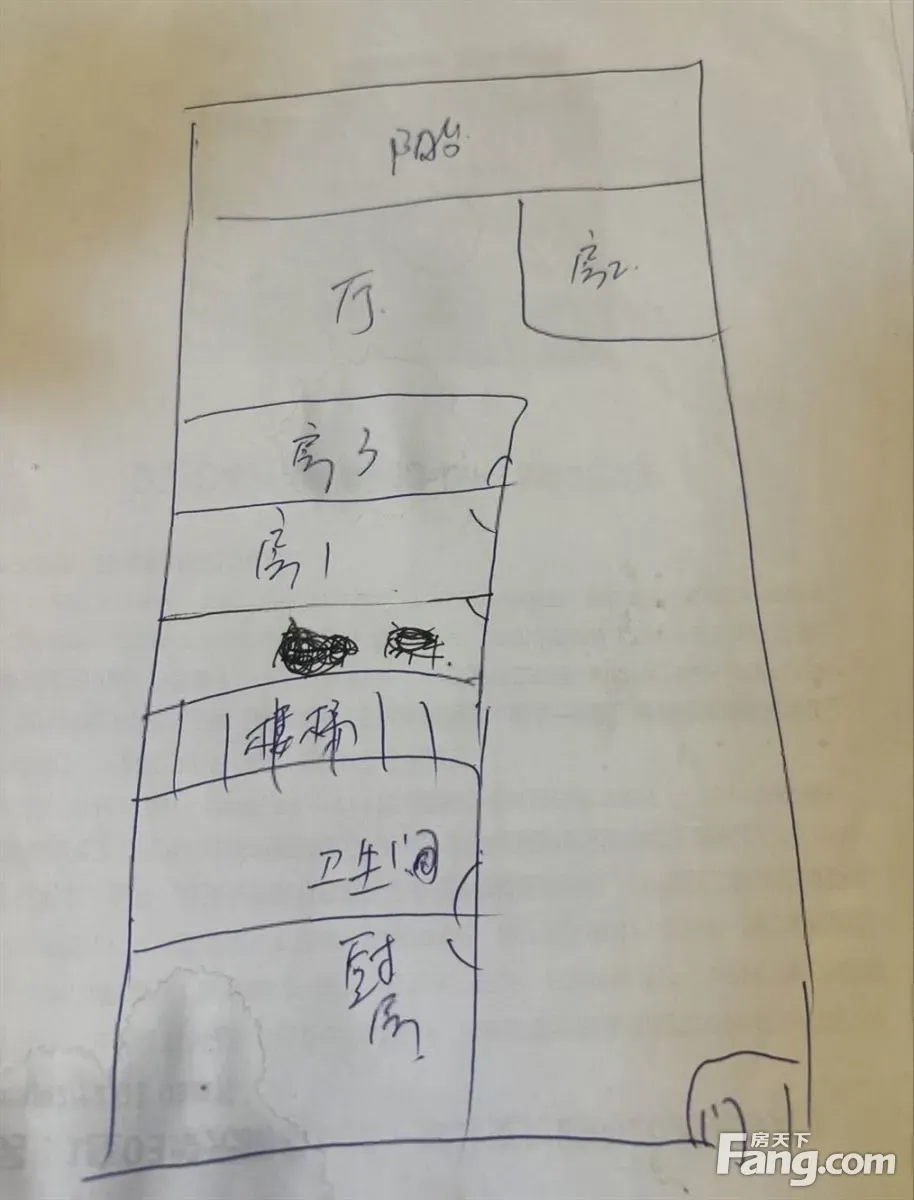 阳台
房2.
厅.
房3
房1
楼梯
卫生间
厨
房
门
房天下
Fang.com